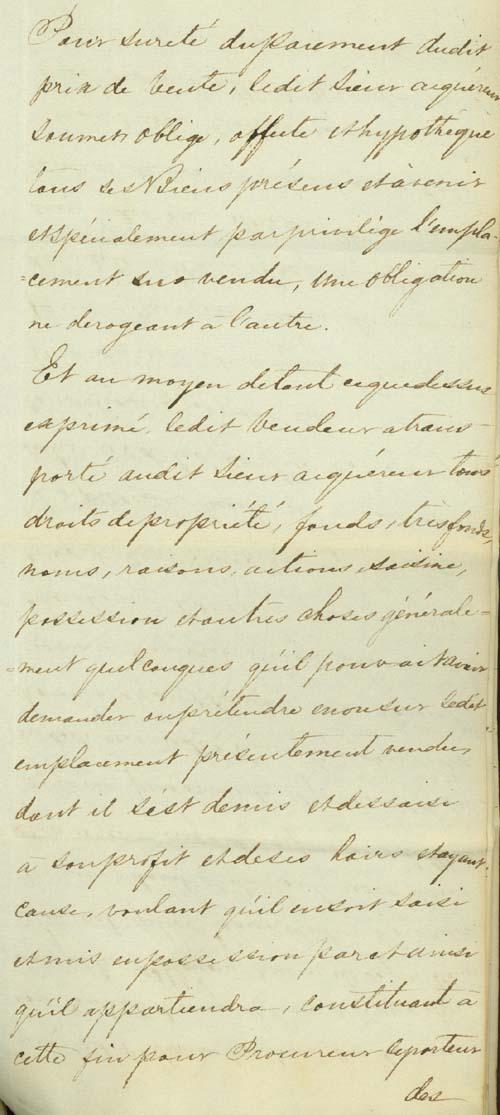 Pour sureté du paiement dudit
prix de vente, ledit Sieur acquéreur
soumet oblige, affecte et hypothèque
tous ses Biens présens et à venir
et spécialement par privilège l'empla-
=cement sus vendu, une obligation
ne derogeant à l'autre.
Et au moyen de tout ce que dessus
exprimé, ledit Vendeur a trans-
porté audit Sieur acquéreur tous
droits de propriété, fonds, très fonds,
noms, raisons, actions, saisine,
possession et autres choses générale=
=ment quelconques qu'il pouvait avoir
demander ou prétendre en ou sur ledit
emplacement présentement vendu,
dont il s'est demis et dessaisi
à son profit et de ses hoirs et ayant
cause, voulant qu'il en soit saisi
et mis en possession par et ainsi
qu'il appartiendra, constituant à
cette fin pour Procureur le porteur
des